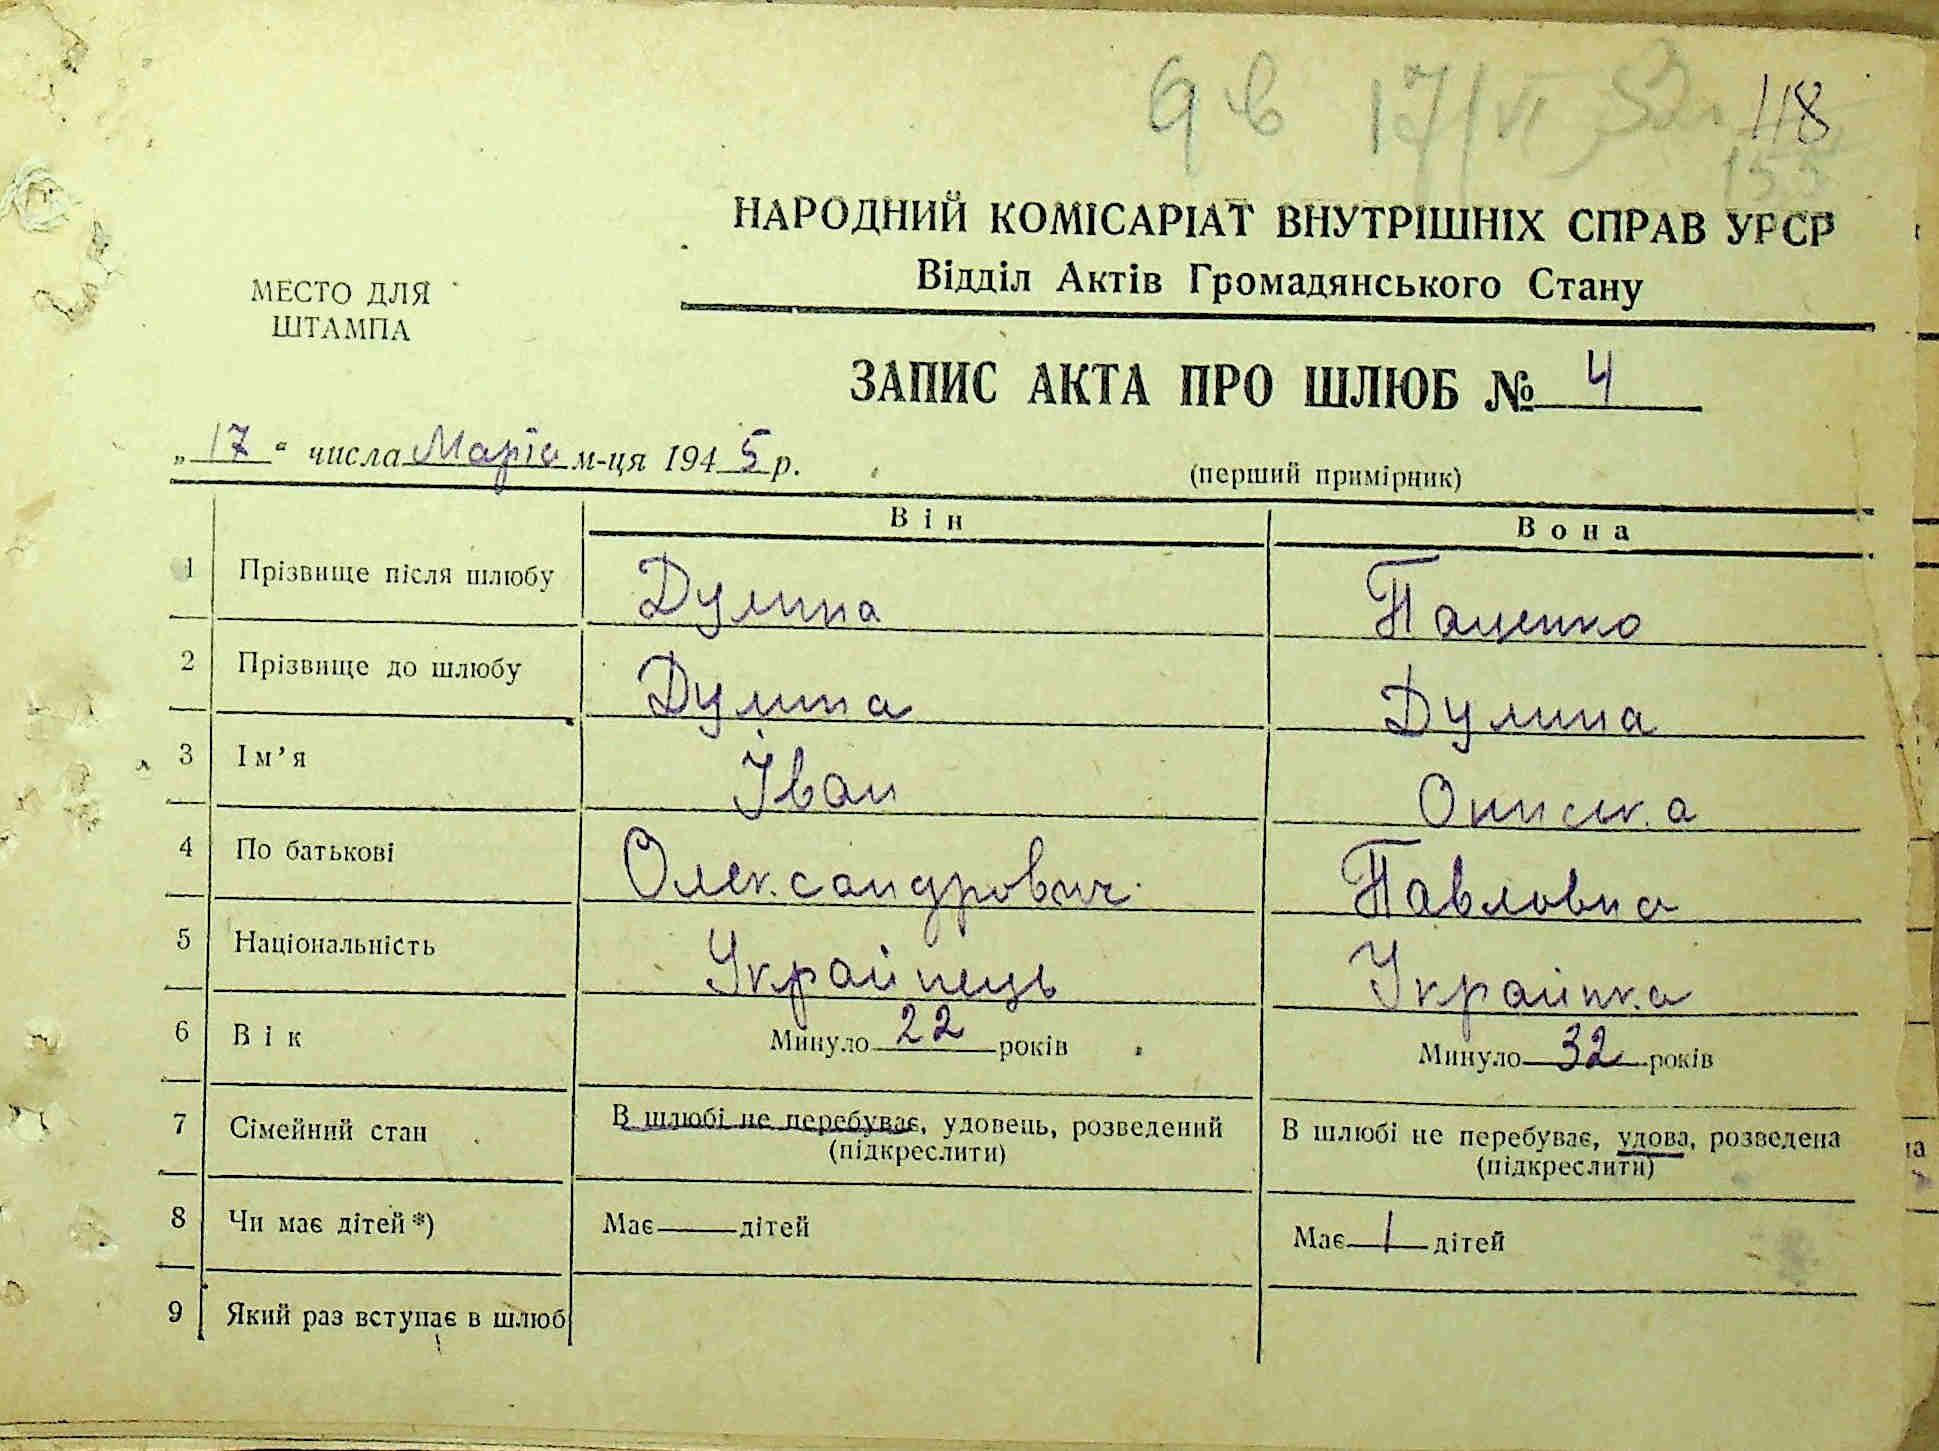 9 в 17/VI 52г 48
155
НАРОДНИЙ КОМІСАРІАТ ВНУТРІШНІХ СПРАВ УРСР
Відділ Актів Громадянського Стану
МЕСТО ДЛЯ
ШТАМПА
ЗАПИС АКТА ПРО ШЛЮБ № 4
„17“ числа Марта м-ця 1945 р.
(перший примірник)
Він Вона
1 Прізвище після шлюбу Дулина Паценко
2 Прізвище до шлюбу Дулина Дулина
3 Ім’я Іван Ониська
4 По батькові Олександрович Павловна
5 Національність Українець Українка
6 Вік Минуло 22 років Минуло 32 років
7 Сімейний стан В шлюбі не перебуває, удовець, розведений В шлюбі не перебуває, удова, розведена
(підкреслити) (підкреслити)
8 Чи має дітей*) Має — дітей Має 1 дітей
9 Який раз вступає в шлюб